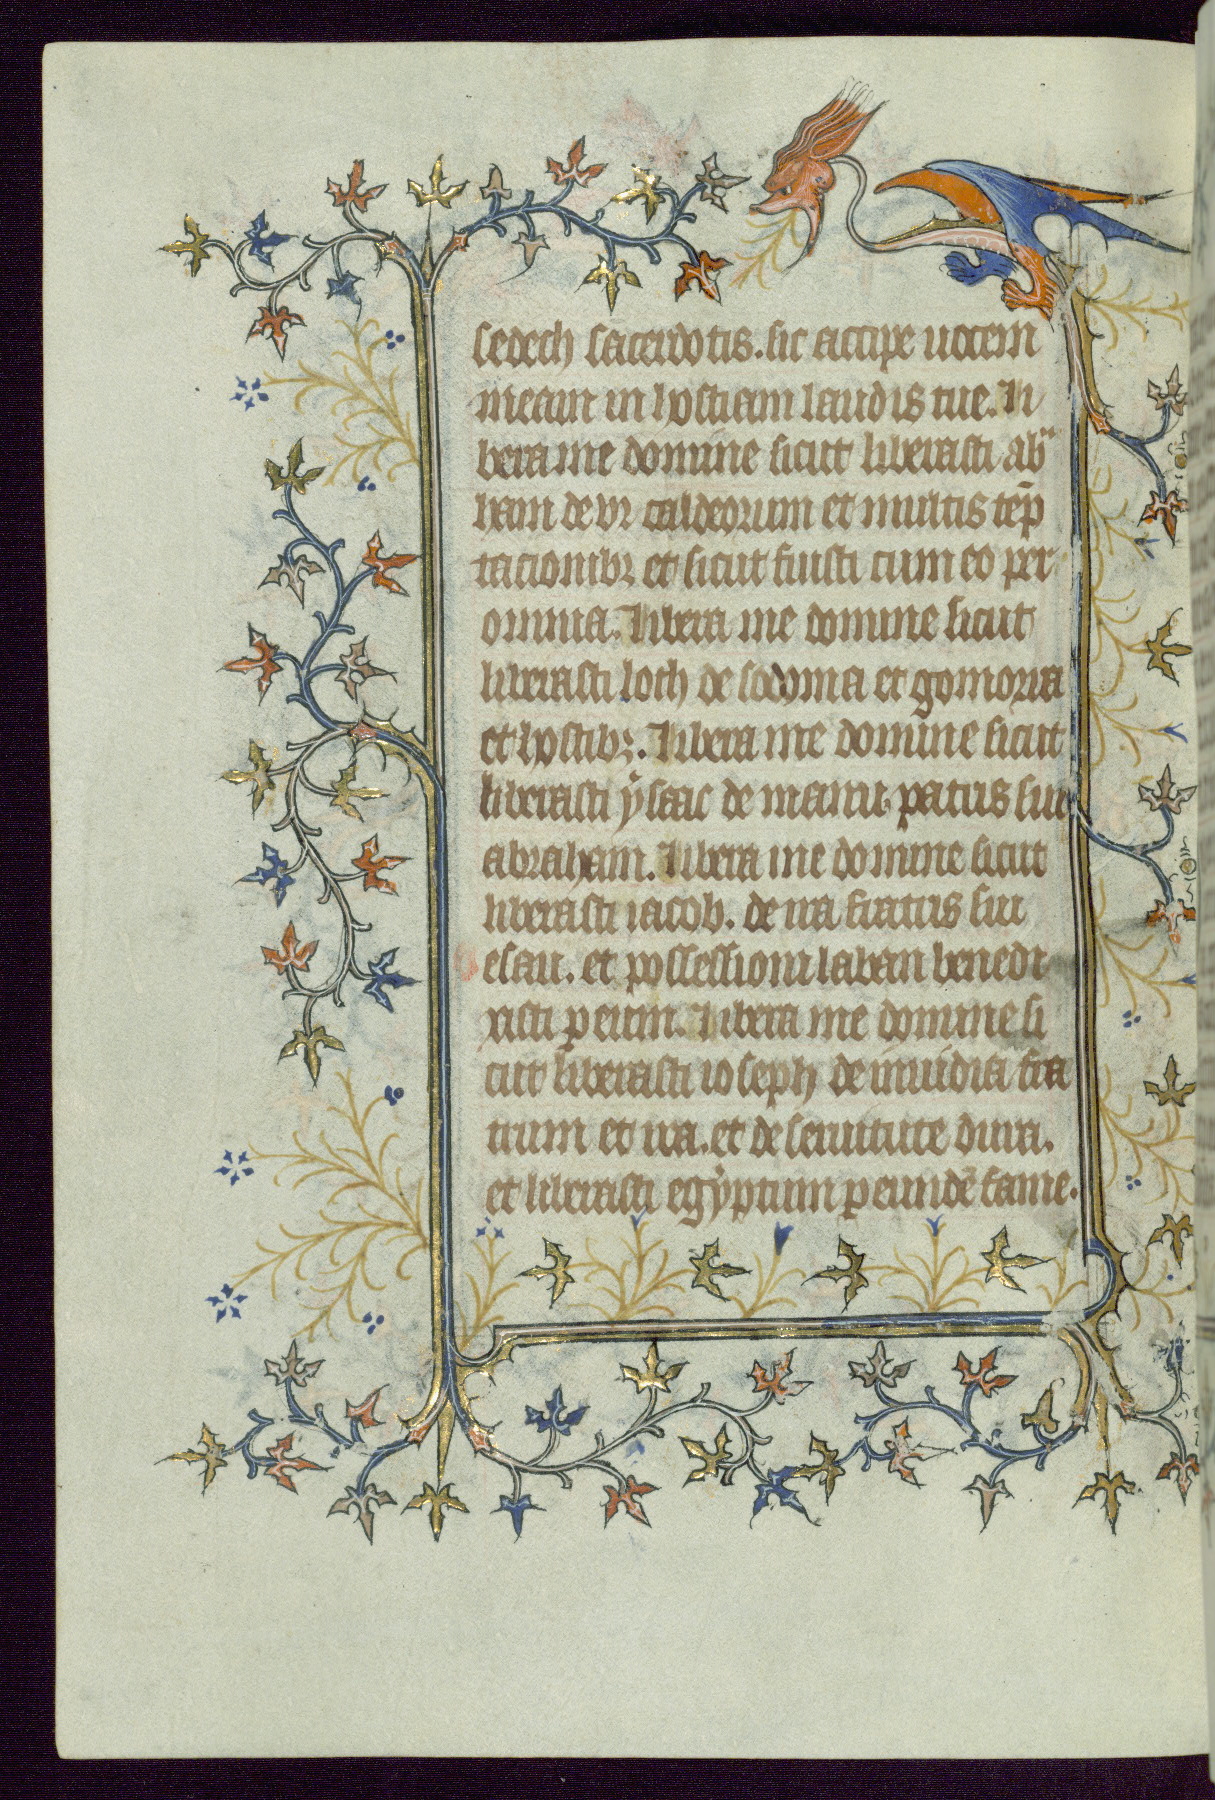 sedech sacerdotis. sic accipe uocem
meam in hostiam laudis tue. Li
bera me domine sicut liberasti ab͛
ham de vr caldeorum et multis tēp
tacionibꝫ et sicut fuisti cum eo per
omnia. Libera me domine sicut
liberasti loth de sodoma et gomorra
et hostibꝫ. Libera me domine sicut
liberasti ẏsaac de manu patris sui
abraham. Libera me domine sicut
liberasti iacob. de ira fratris sui
esau. et possessioni laban benedi
xisti ꝑ eum. Libera me domine si
cut liberasti ioseph de inuidia fra
trum et ira. et de seruitute dura.
et liberasti egẏptum ꝑ eundē fame.